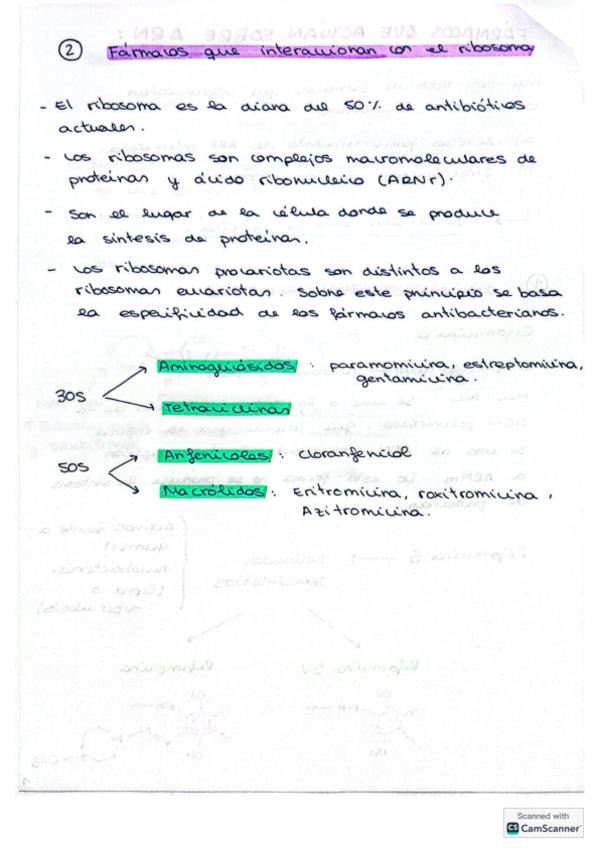 ② Fármacos que interaccionan con el ribosoma
- El ribosoma es la diana del 50% de antibióticos
actuales.
- Los ribosomas son complejos macromoleculares de
proteínas y ácido ribonucleico (ARNr).
- Son el lugar de la célula donde se produce
la síntesis de proteínas.
- Los ribosomas procariotas son distintos a los
ribosomas eucariotas. Sobre este principio se basa
la especificidad de los fármacos antibacterianos.
30S
Aminoglucósidos : paramomicina, estreptomicina,
gentamicina.
Tetraciclinas
50S
Anfenicoles : cloranfenicol
Macrólidos : Eritromicina, roxitromicina,
Azitromicina.
Scanned with
CS CamScanner